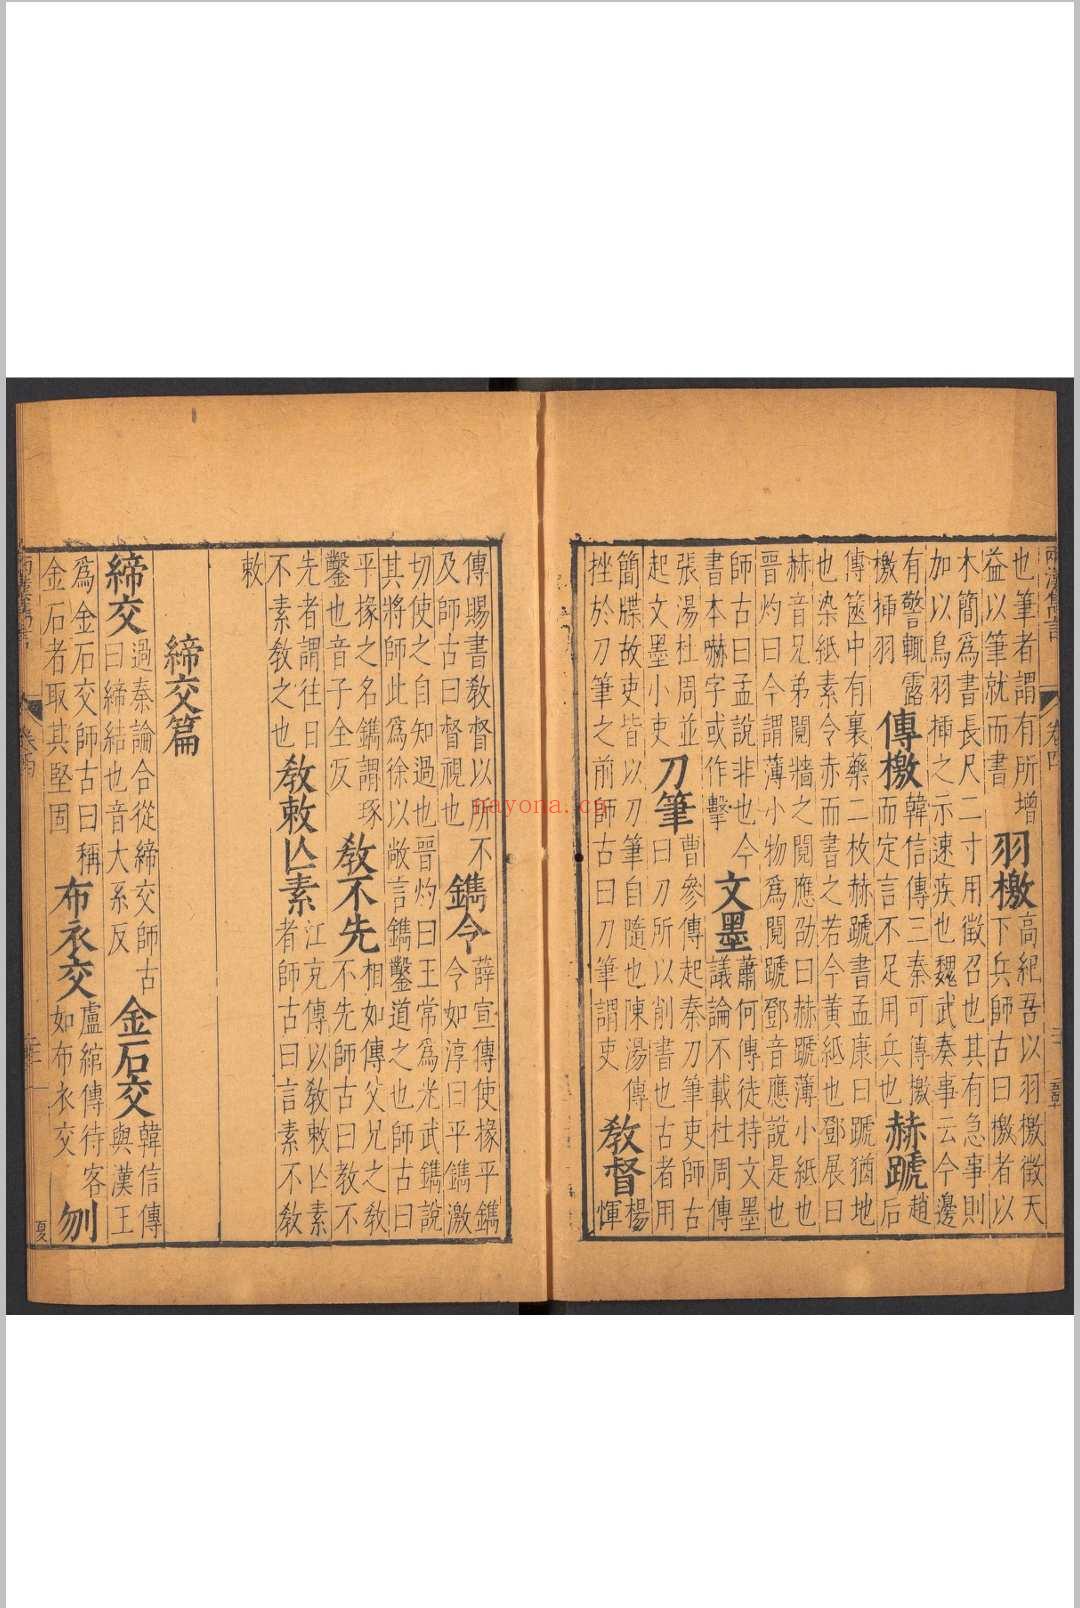 兩漢雋言 卷四
也筆者謂有所增益以筆就而書羽檄高紀吾以羽檄徵天下兵師古曰檄者以
木簡爲書長尺二寸用徵召也其有急事則加以鳥羽插之示速疾也魏武奏事云今邊
有警輒露檄插羽傳檄韓信傳三秦可傳檄而定言不足用兵也赫蹏趙后
傳篋中有裹藥二枚赫蹏書孟康曰蹏猶地也染紙素令赤而書之若今黃紙也鄧展曰
赫音兄弟鬩牆之鬩應劭曰赫蹏薄小紙也晉灼曰今謂薄小物爲鬩蹏鄧音應說是也
師古曰孟說非也今書本嚇字或作擊文墨蕭何傳徒持文墨議論不載杜周傳
張湯杜周並起文墨小吏刀筆曹參傳起秦刀筆吏師古曰刀所以削書也古者用
簡牒故吏皆以刀筆自隨也陳湯傳挫於刀筆之前師古曰刀筆謂吏教督楊惲
傳賜書教督以所不及師古曰督視也鐫令薛宣傳使掾平鐫令如淳曰平鐫激
切使之自知過也晉灼曰王常爲光武鐫說其將師此爲徐以敞言鐫鑿道之也師古曰
平掾之名鐫謂琢鑿也音子全反教不先相如傳父兄之教不先師古曰教不
先者謂往日不素教之也教敕亾素江充傳以教敕亾素者師古曰言素不教
敕
締交篇
締交過秦論合從締交師古曰締結也音大系反金石交韓信傳與漢王
爲金石交師古曰稱金石者取其堅固布衣交盧綰傳待客如布衣交刎
nayona.cn